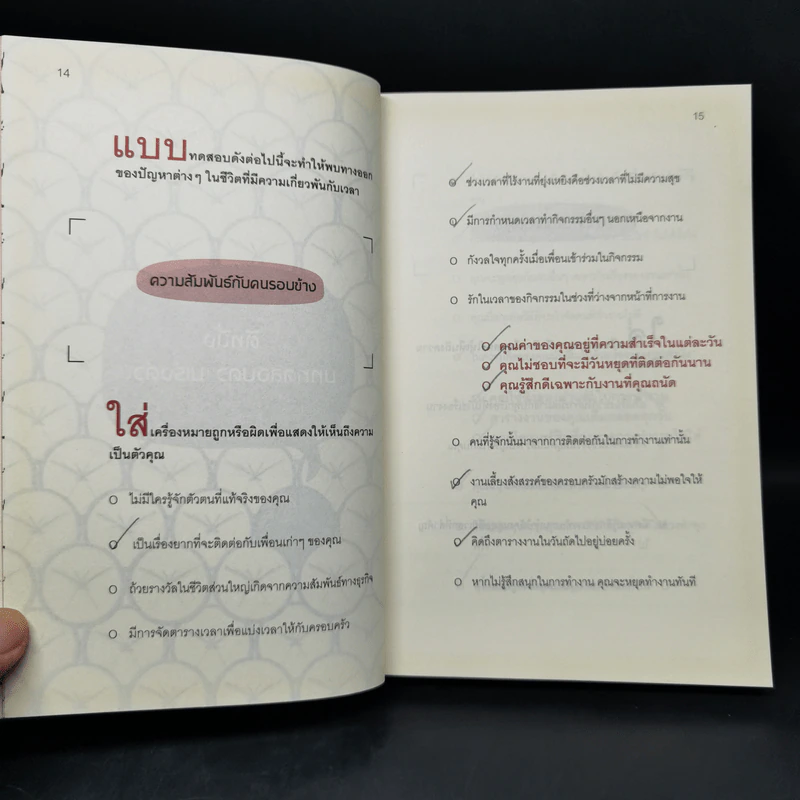 14
แบบทดสอบดังต่อไปนี้จะทำให้พบทางออก
ของปัญหาต่างๆ ในชีวิตที่มีความเกี่ยวพันกับเวลา
ความสัมพันธ์กับคนรอบข้าง
ใส่เครื่องหมายถูกหรือผิดเพื่อแสดงให้เห็นถึงความ
เป็นตัวคุณ
ไม่มีใครรู้จักตัวตนที่แท้จริงของคุณ
เป็นเรื่องยากที่จะติดต่อกับเพื่อนเก่าๆ ของคุณ
ถ้วยรางวัลในชีวิตส่วนใหญ่เกิดจากความสัมพันธ์ทางธุรกิจ
มีการจัดตารางเวลาเพื่อแบ่งเวลาให้กับครอบครัว
15
ช่วงเวลาที่ไร้งานที่ยุ่งเหยิงคือช่วงเวลาที่ไม่มีความสุข
มีการกำหนดเวลาทำกิจกรรมอื่นๆ นอกเหนือจากงาน
กังวลใจทุกครั้งเมื่อเพื่อนเข้าร่วมในกิจกรรม
รักในเวลาของกิจกรรมในช่วงที่ว่างจากหน้าที่การงาน
คุณค่าของคุณอยู่ที่ความสำเร็จในแต่ละวัน
คุณไม่ชอบที่จะมีวันหยุดที่ติดต่อกันนาน
คุณรู้สึกดีเฉพาะกับงานที่คุณถนัด
คนที่รู้จักนั้นมาจากการติดต่อกันในการทำงานเท่านั้น
งานเลี้ยงสังสรรค์ของครอบครัวมักสร้างความไม่พอใจให้
คุณ
คิดถึงตารางงานในวันถัดไปอยู่บ่อยครั้ง
หากไม่รู้สึกสนุกในการทำงาน คุณจะหยุดทำงานทันที